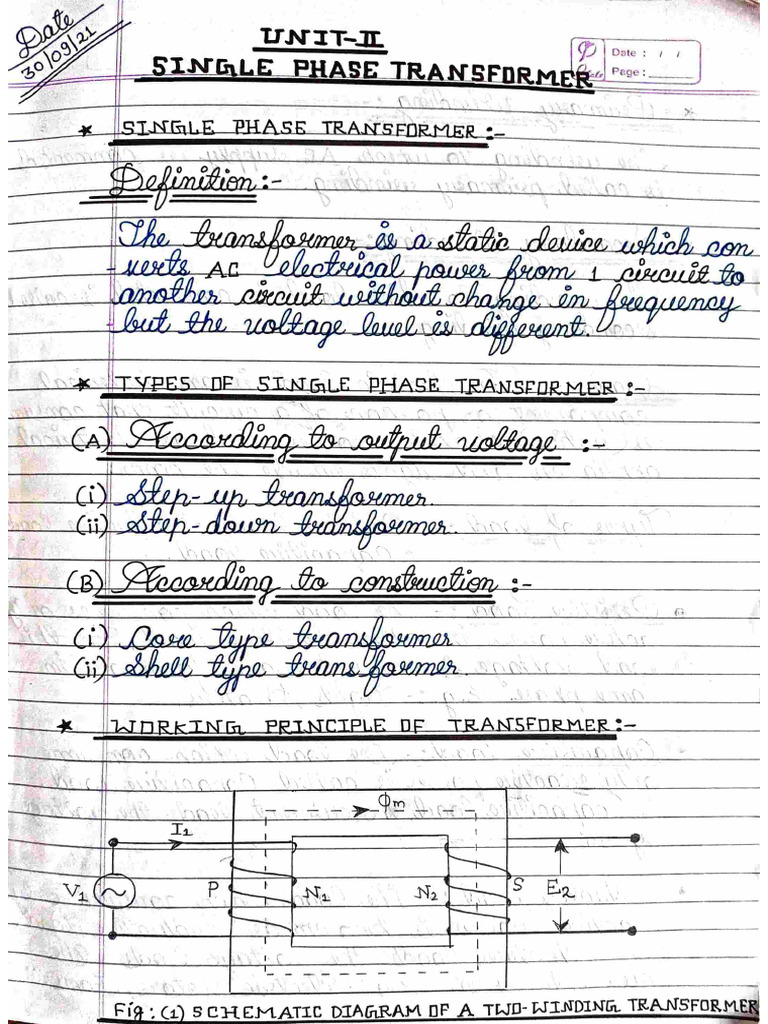 Date
30/09/21
UNIT-II
SINGLE PHASE TRANSFORMER
Date : / /
Page :
* SINGLE PHASE TRANSFORMER :-
Definition :-
The transformer is a static device which con
-verts AC electrical power from 1 circuit to
another circuit without change in frequency
but the voltage level is different.
* TYPES OF SINGLE PHASE TRANSFORMER :-
(A) According to output voltage :-
(i) Step-up transformer.
(ii) Step-down transformer.
(B) According to construction :-
(i) Core type transformer
(ii) Shell type transformer.
* WORKING PRINCIPLE OF TRANSFORMER :-
Φm
I1
V1
P
N1
N2
S
E2
Fig: (1) SCHEMATIC DIAGRAM OF A TWO-WINDING TRANSFORMER